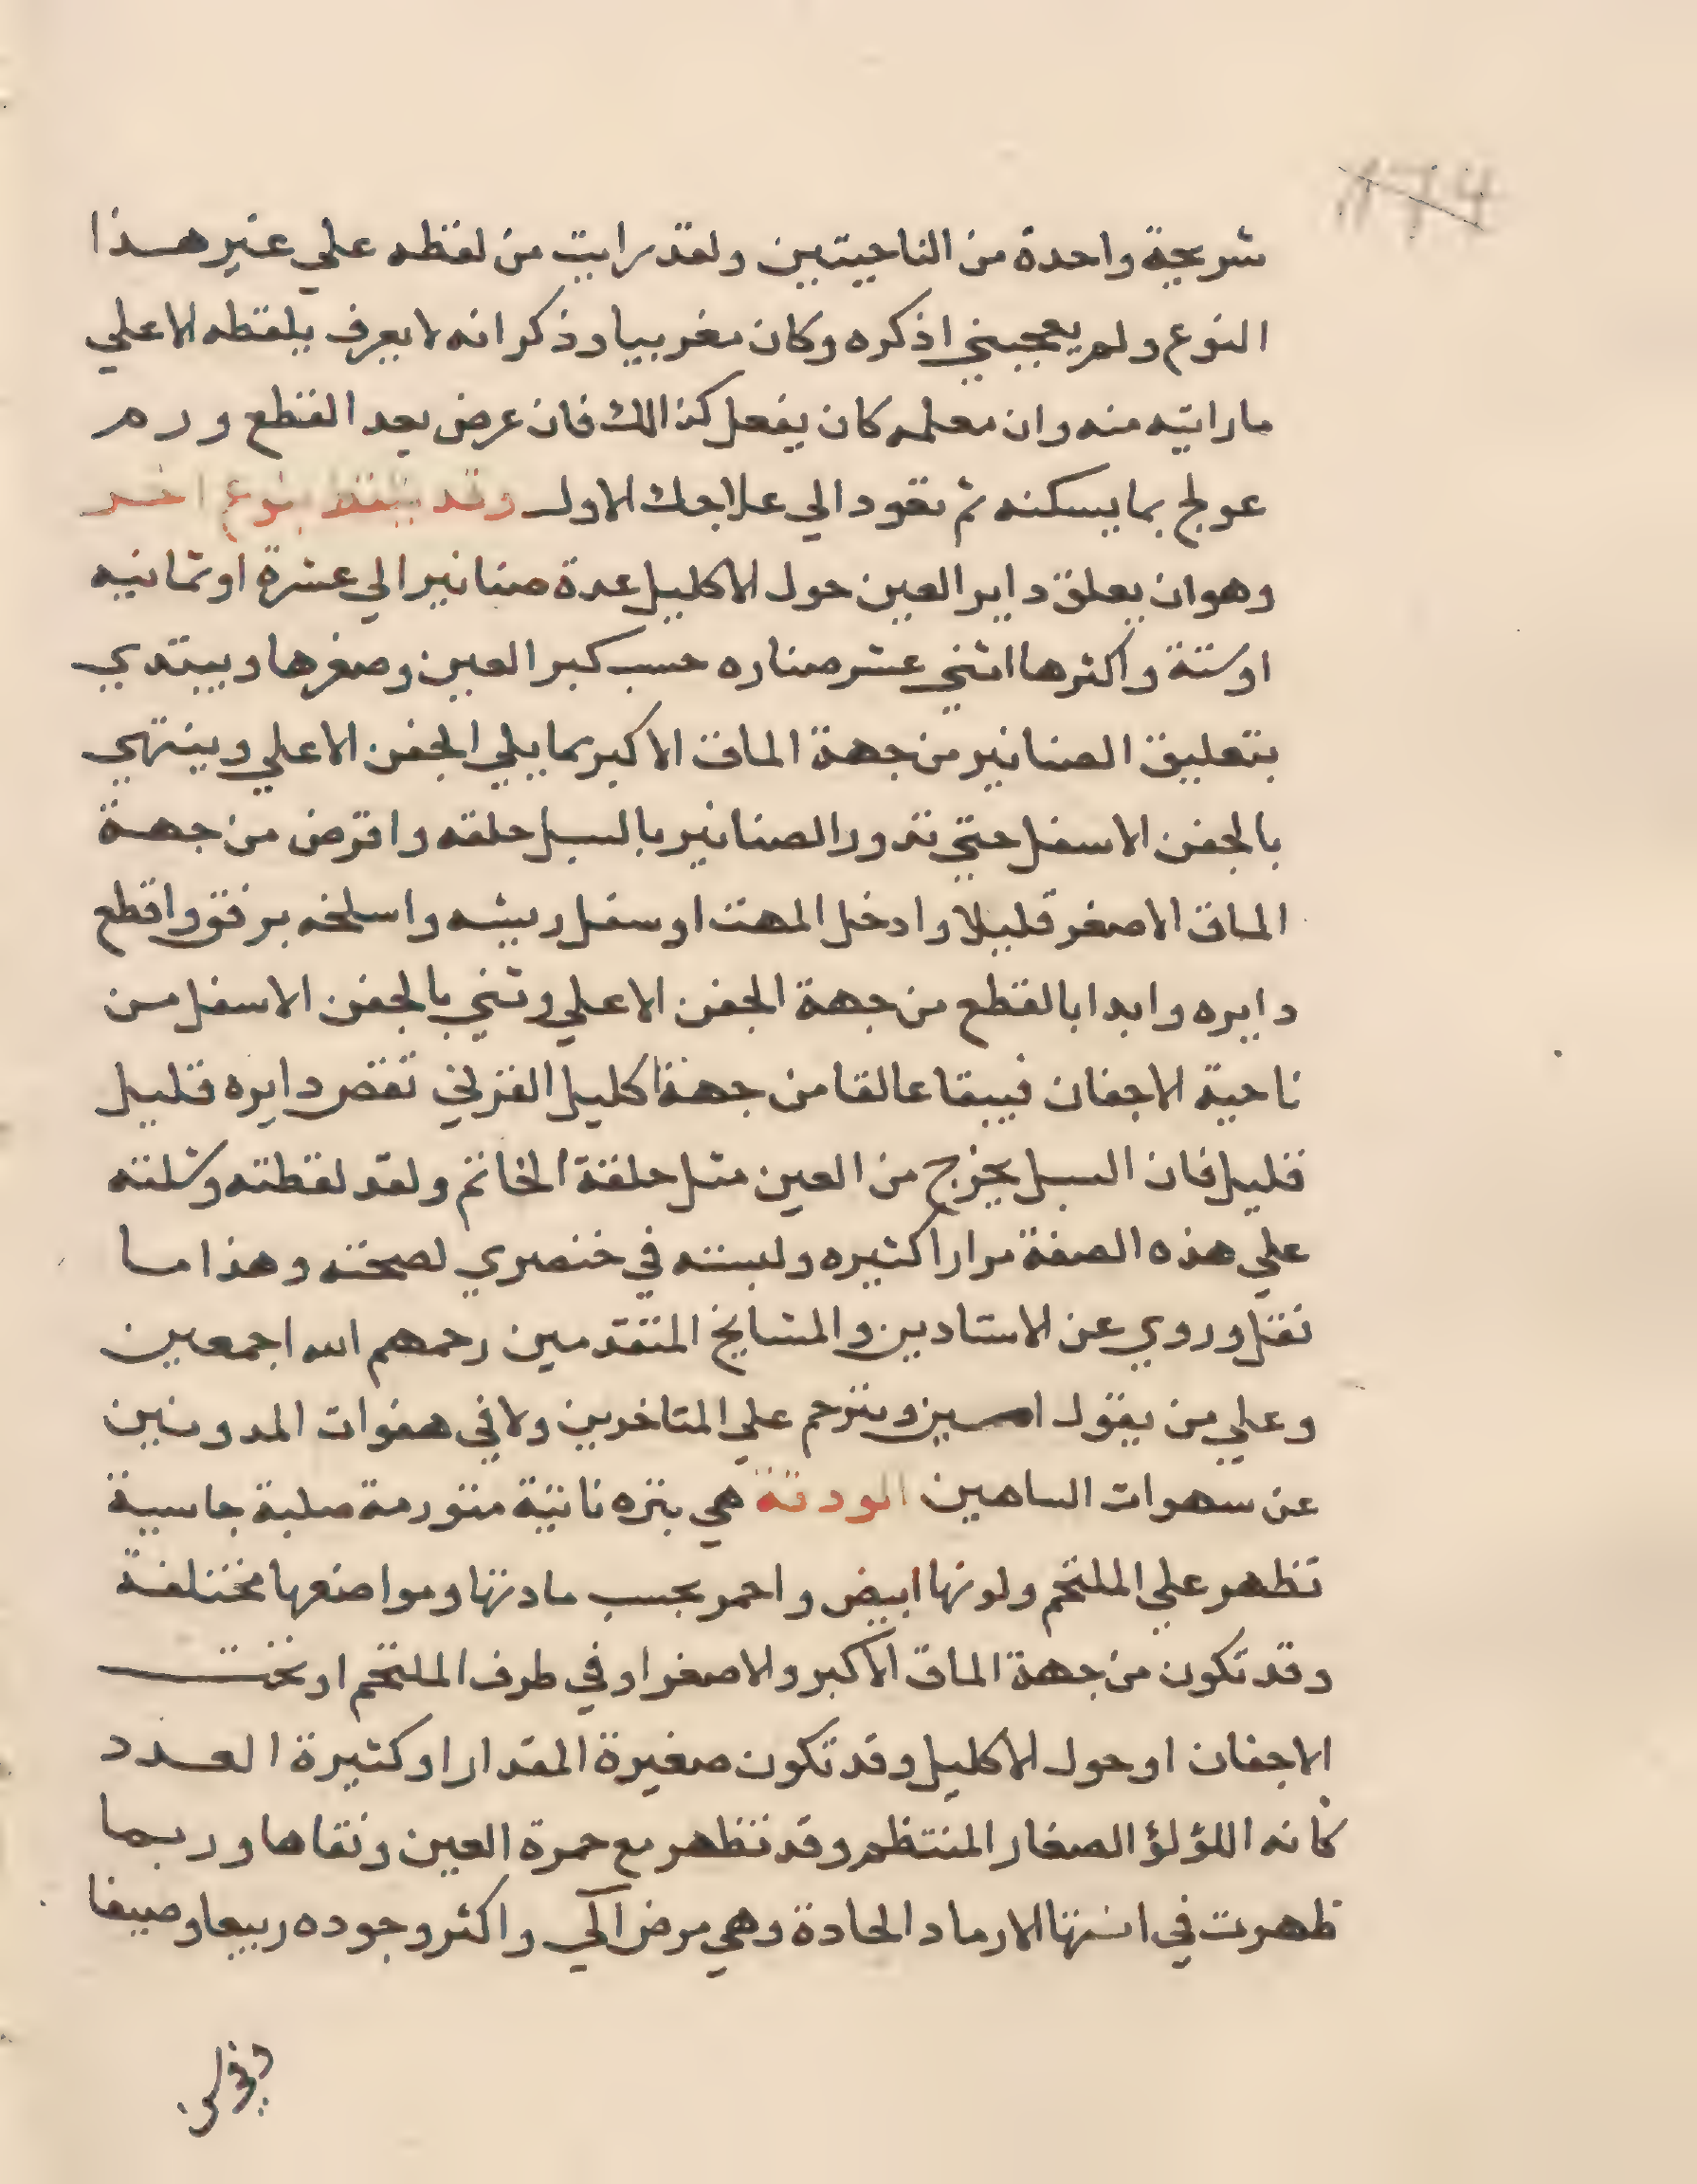 شريحة واحدة من الناحيتين ولقد رايت من لقطه علي غير هذا
النوع ولم يعجبني اذكره وكان مغربيا وذكر انه لا يعرف يلقطه الا علي
ما رايته منه وان معلمه كان يفعل كذالك فان عرض بعد القطع ورم
عولج بما يسكنه ثم تعود الي علاجك الاول وقد يلقط بنوع اخر
وهو ان يعلق داير العين حول الاكليل عدة صنانير الي عشرة او ثمانيه
او ستة واكثرها اثني عشر صناره حسب كبر العين وصغرها ويبتدي
بتعليق الصنانير من جهة الماق الاكبر مما يلي الجفن الاعلي وينتهي
بالجفن الاسفل حتي تدور الصنانير بالسبل حلقه واقرض من جهة
الماق الاصغر قليلا وادخل المهت او سفل ريشه واسلخه برفق واقطع
دايره وابدا بالقطع من جهة الجفن الاعلي وثني بالجفن الاسفل من
ناحية الاجفان فيبقا عالقا من جهة اكليل القرني تقص دايره قليل
قليل فان السبل يخرج من العين مثل حلقة الخاتم ولقد لقطته وشلته
علي هذه الصفة مرارا كثيره ولبسته في خنصري لصحته وهذا ما
نقل وروي عن الاستادين والمشايخ المتقدمين رحمهم الله اجمعين
وعلي من يقول امين ويترحم علي المتاخرين ولافي هفوات المدونين
عن سهوات الساهين الودقة هي بثره ناتية متورمة صلبة جاسية
تظهر علي الملتحم ولونها ابيض واحمر بحسب مادتها ومواضعها مختلفة
وقد تكون من جهة الماق الاكبر والاصغر او في طرف الملتحم او تحت
الاجفان او حول الاكليل وقد تكون صغيرة المقدار او كثيرة العدد
كانه اللؤلؤ الصغار المنتظم وقد تظهر مع حمرة العين ونقاها وربما
ظهرت في انتها الارماد الحادة وهي مرض الي واكثر وجوده ربيعا وصيفا